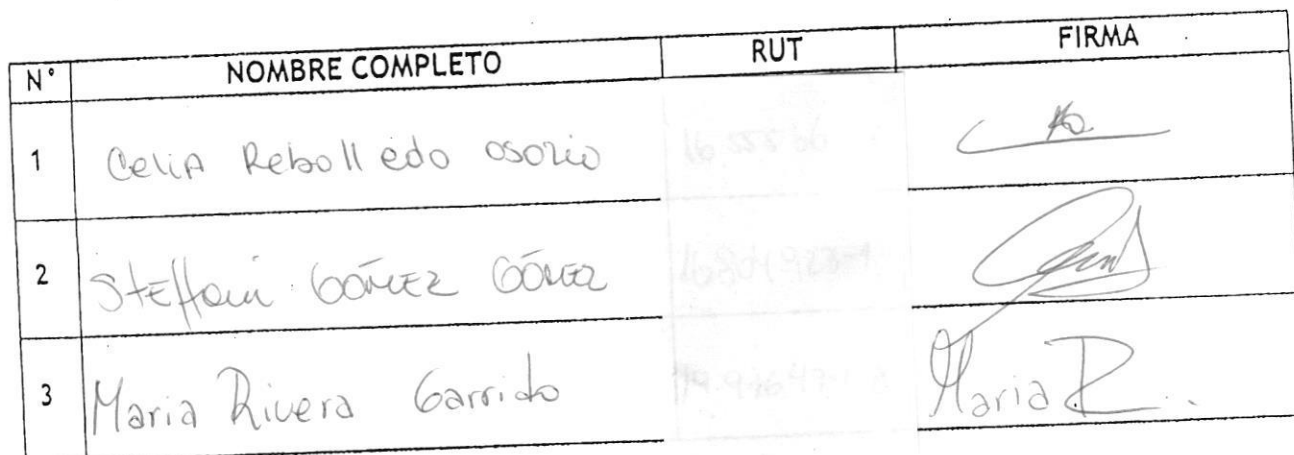 N° NOMBRE COMPLETO RUT FIRMA
1 Celia Rebolledo Osorio
2 Steffani Gómez Gómez
3 Maria Rivera Garrido Maria R.